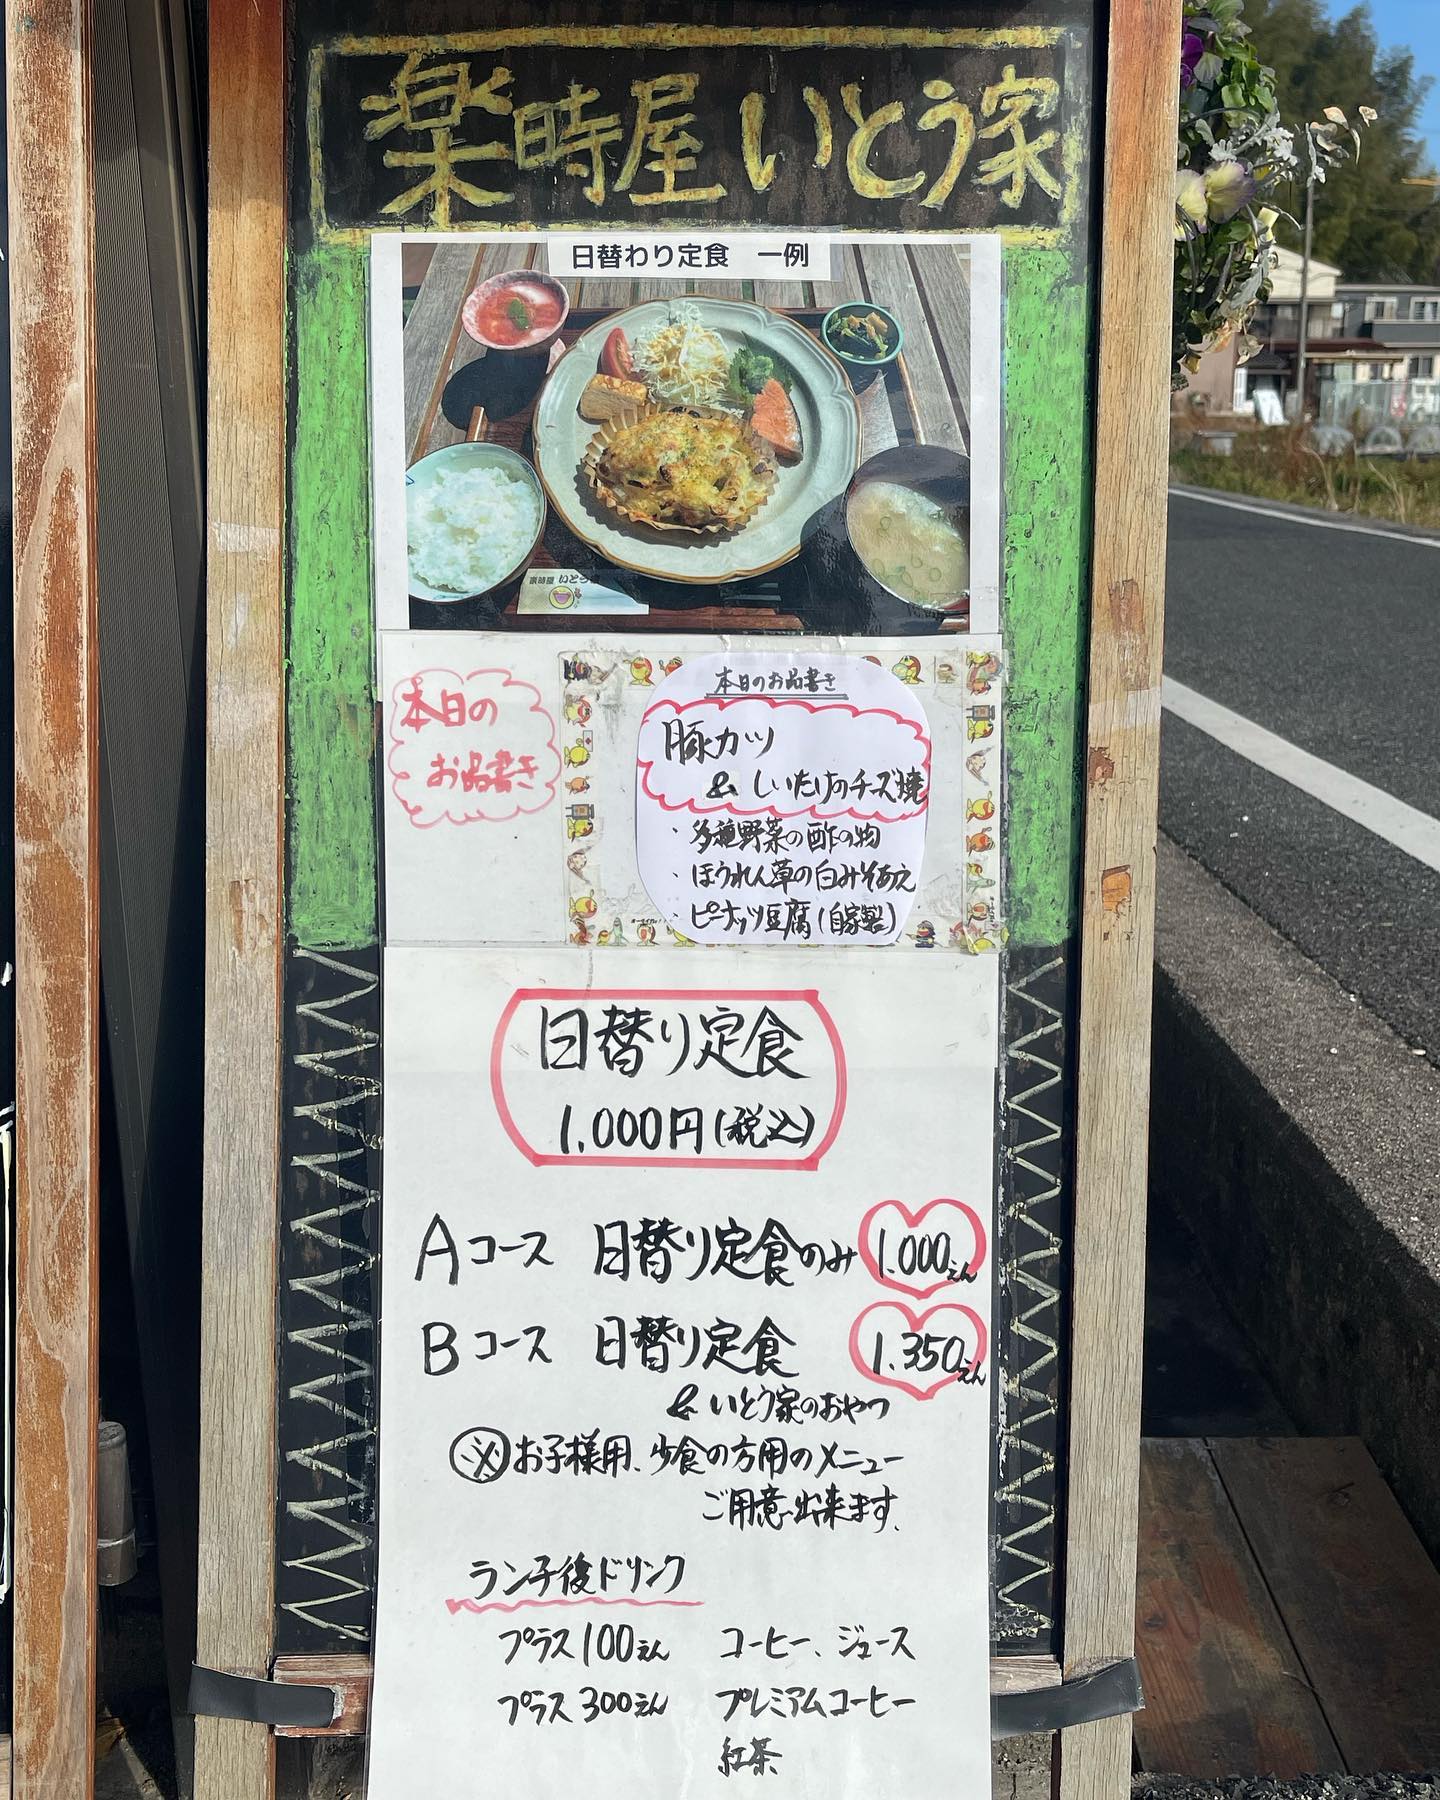 楽時屋 いとう家
日替わり定食 一例
楽時屋 いとう家
本日の
お品書き
本日のお品書き
豚カツ
& しいたけのチーズ焼
・多種野菜の酢の物
・ほうれん草の白みそあえ
・ピーナッツ豆腐(自家製)
日替り定食
1,000円(税込)
Aコース 日替り定食のみ 1.000えん
Bコース 日替り定食 1.350えん
& いとう家のおやつ
※お子様用、少食の方用のメニュー
ご用意出来ます。
ランチ後ドリンク
プラス100えん コーヒー、ジュース
プラス300えん プレミアムコーヒー
紅茶